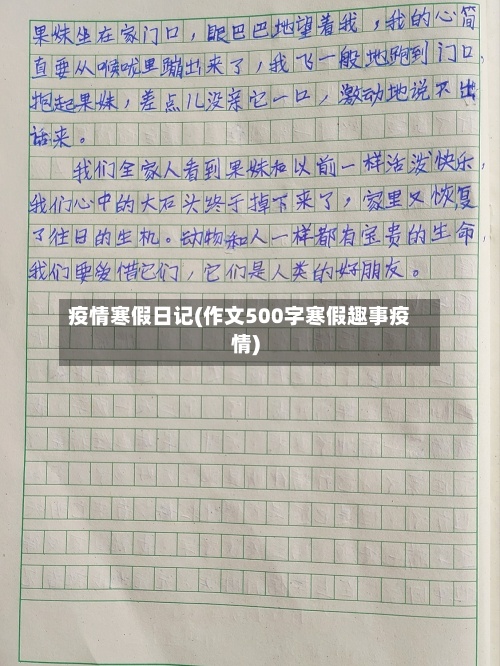 果妹坐在家门口，眼巴巴地望着我，我的心简
直要从喉咙里蹦出来了，我飞一般地跑到门口，
抱起果妹，差点儿没亲它一口，激动地说不出
话来。
我们全家人看到果妹和以前一样活泼快乐，
我们心中的大石头终于掉下来了，家里又恢复
了往日的生机。动物和人一样都有宝贵的生命，
我们要爱惜它们，它们是人类的好朋友。
疫情寒假日记(作文500字寒假趣事疫
情)